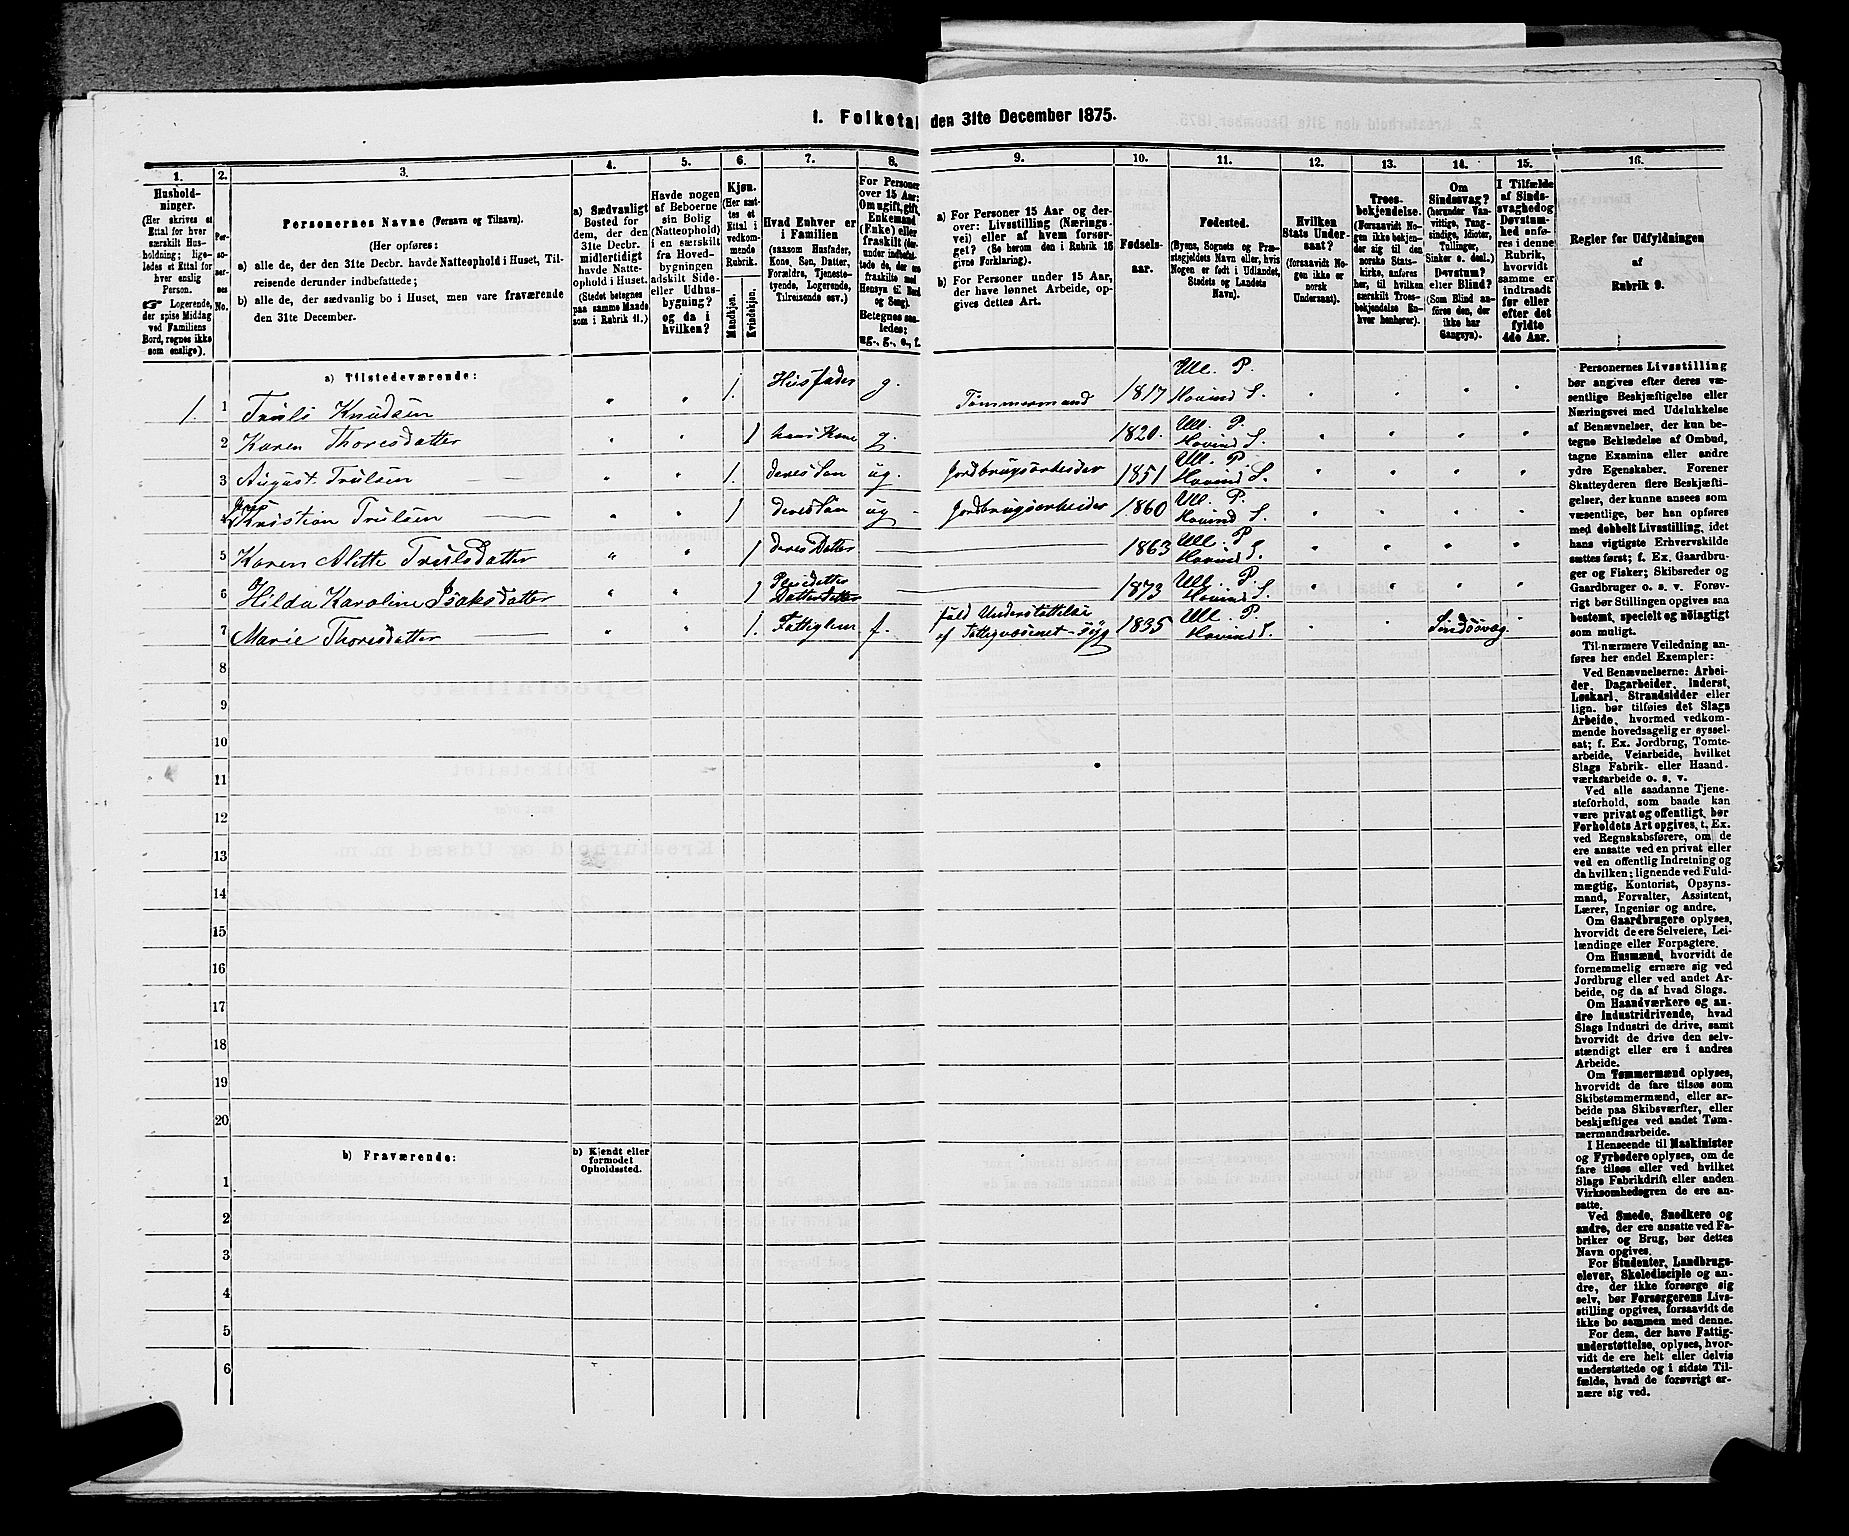 1. Folketal den 31te December 1875.
1.
Hushold-
ninger.
(Her skrives et
Ettal for hver
særskilt Hus-
holdning; lige-
ledes et Ettal for
hver enslig
Person.
☞ Logerende,
der spise Middag
ved Familiens
Bord, regnes ikke
som enslige).
2.
Per-
so-
ner-
nes
No.
3.
Personernes Navne (Fornavn og Tilnavn).
(Her opføres:
a) alle de, der den 31te Decbr. havde Natteophold i Huset, Til-
reisende derunder indbefattede;
b) alle de, der sædvanlig bo i Huset, men vare fraværende
den 31te December.
4.
a) Sædvanligt
Bosted for
dem, der den
31te Decbr.
midlertidigt
havde Natte-
ophold i Huset.
(Stedet betegnes
paa samme Maade
som i Rubrik 11.)
5.
Havde nogen
af Beboerne
sin Bolig
(Natteophold)
i en særskilt
fra Hoved-
bygningen
adskilt Side-
eller Udhus-
bygning?
og da i
hvilken?
6.
Kjøn.
(Her sæt-
tes et
Ettal i
vedkom-
mende
Rubrik.
Mandkjøn.
Kvindekjøn.
7.
Hvad Enhver er
i Familien
(saasom Husfader,
Kone, Søn, Datter,
Forældre, Tjeneste-
tyende, Logerende,
Tilreisende osv.)
8.
For Personer
over 15 Aar:
Om ugift, gift,
Enkemand
(Enke) eller
fraskilt (der-
under indbefat-
tede de, der ere
fraskilte med
Hensyn til Bord
og Seng).
Betegnes saa-
ledes:
ug., g., e., f.
9.
a) For Personer 15 Aar og der-
over: Livsstilling (Nærings-
vei) eller af hvem forsør-
get? (Se herom den i Rubrik 16
givne Forklaring).
b) For Personer under 15 Aar,
der have lønnet Arbeide, op-
gives dettes Art.
10.
Fødsels-
aar.
11.
Fødested.
(Byens, Sognets og Præ-
stegjeldets Navn eller, hvis
Nogen er født i Udlandet,
Stedets og Landets
Navn).
12.
Hvilken
Stats Under-
saat?
(forsaavidt No-
gen ikke er
norsk
Undersaat).
13.
Troes-
bekjendelse.
(Forsaavidt No-
gen ikke bekjen-
der sig til den
norske Stats-
kirke, anføres
her, til hvilken
særskilt Troes-
bekjendelse En-
hver henhører).
14.
Om
Sindssvag?
(herunder Van-
vittige, Tung-
sindige, Idioter,
Tullinger,
Sinker o. desl.)
Døvstum?
eller Blind?
(Som Blind an-
føres den, der
ikke har
Gangsyn).
15.
I Tilfælde
af Sinds-
svaghed og
Døvstum-
hed anfø-
res i denne
Rubrik,
hvorvidt
samme er
indtraadt
før eller
efter det
fyldte
4de Aar.
16.
Regler for Udfyldningen
af
Rubrik 9.
a) Tilstedeværende:
1. 1 Truls Knudsen " " 1. Husfader g. Tømmermand 1817 Ull. P. Hovind S.
2 Karen Thoresdatter " " 1 hans Kone g. 1820. Ull. P. Hovind S.
3 August Trulsen " " 1. deres Søn ug. Jordbrugsarbeider 1851 Ull. P. Hovind S.
4 Kristian Trulsen " " 1 deres Søn ug Jordbrugsarbeider 1860 Ull. P. Hovind S.
5 Karen Alette Trulsdatter " " 1 deres Datter 1863 Ull. P. Hovind S.
6 Hilda Karoline Isaksdatter " " 1 Pleiedatter Datterdatter 1873 Ull. P. Hovind S.
7 Marie Thoresdatter " " 1. Fattiglem f. fuld Understøttelse af Fattigvæsenet - syg 1835 Ull. P. Hovind S. Sindssvag
8
9
10
11
12
13
14
15
16
17
18
19
20
b) Fraværende:
b) Kjendt eller
formodet
Opholdssted.
1
2
3
4
5
6
Personernes Livsstilling
bør angives efter deres væ-
sentlige Beskjæftigelse eller
Næringsvei med Udelukkelse
af Benævnelser, der kun be-
tegne Beklædelse af Ombud,
tagne Examina eller andre
ydre Egenskaber. Forener
Skatteyderen flere Beskjæfti-
gelser, der kunne ansees som
væsentlige, bør han opføres
med dobbelt Livsstilling, idet
hans vigtigste Erhvervskilde
sættes først; f. Ex. Gaardbru-
ger og Fisker; Skibsreder og
Gaardbruger o. s. v. Forøv-
rigt bør Stillingen opgives saa
bestemt, specielt og nøiagtigt
som muligt.
Til nærmere Veiledning an-
føres her endel Exempler:
Ved Benævnelserne: Arbei-
der, Dagarbeider, Inderst,
Løskarl, Strandsidder eller
lign. bør tilføies det Slags
Arbeide, hvormed vedkom-
mende hovedsagelig er syssel-
sat; f. Ex. Jordbrug, Tomte-
arbeide, Veiarbeide, hvilket
Slags Fabrik- eller Haand-
værksarbeide o. s. v.
Ved alle saadanne Tjene-
steforhold, som baade kan
være privat og offentligt, bør
Forholdets Art opgives, t. Ex.
ved Regnskabsførere, om de
ere ansatte ved en privat eller
ved en offentlig Indretning og
da hvilken; lignende ved Fuld-
mægtig, Kontorist, Opsyns-
mand, Forvalter, Assistent,
Lærer, Ingeniør og andre.
Om Gaardbrugere oplyses,
hvorvidt de ere Selveiere, Lei-
lændinge eller Forpagtere.
Om Husmænd, hvorvidt de
fornemmelig ernære sig ved
Jordbrug eller ved andet Ar-
beide, og da af hvad Slags.
Om Haandværkere og an-
dre Industridrivende, hvad
Slags Industri de drive, samt
hvorvidt de drive den selv-
stændigt eller ere i andres
Arbeide.
Om Tømmermænd oplyses,
hvorvidt de fare tilsøs som
Skibstømmermænd, eller ar-
beide paa Skibsværfter, eller
beskjæftiges ved andet Tøm-
mermandsarbeide.
I Henseende til Maskinister
og Fyrbødere oplyses, om de
fare tilsøs eller ved hvilket
Slags Fabrikdrift eller anden
Virksomhedsgren de ere an-
satte.
Ved Smede, Snedkere og
andre, der ere ansatte ved Fa-
briker og Brug, bør dettes
Navn opgives.
For Studenter, Landbrugs-
elever, Skoledisciple og an-
dre, der ikke forsørge sig
selv, bør Forsørgerens Livs-
stilling opgives, forsaavidt de
ikke bo sammen med denne.
For dem, der have Fattig-
understøttelse, oplyses, hvor-
vidt de ere helt eller delvis
understøttede og i sidste Til-
fælde, hvad de forøvrigt er-
nære sig ved.